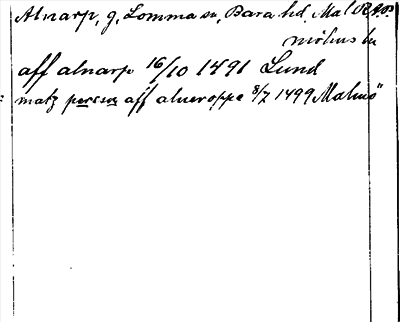 Alnarp, g, Lomma sn, Bara hd. Mal
aff alnarp 16/10 1491 Lund
matz persson aff alneroppe 8/7 1499 Malmö"